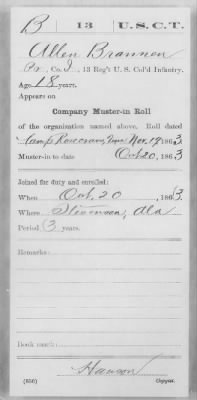 B 13 U.S.C.T.
Allen Brannen
Pr., Co. I, 13 Reg't U. S. Col'd Infantry.
Age 18 years.
Appears on
Company Muster-in Roll
of the organization named above. Roll dated
Camp Rosecrans, Tenn Nov. 19, 1863.
Muster-in to date Oct 20, 1863
Joined for duty and enrolled:
When Oct. 20, 1863.
Where Stevenson, Ala
Period 3 years.
Remarks:
Book mark:
Hanson
(356) Copyist.